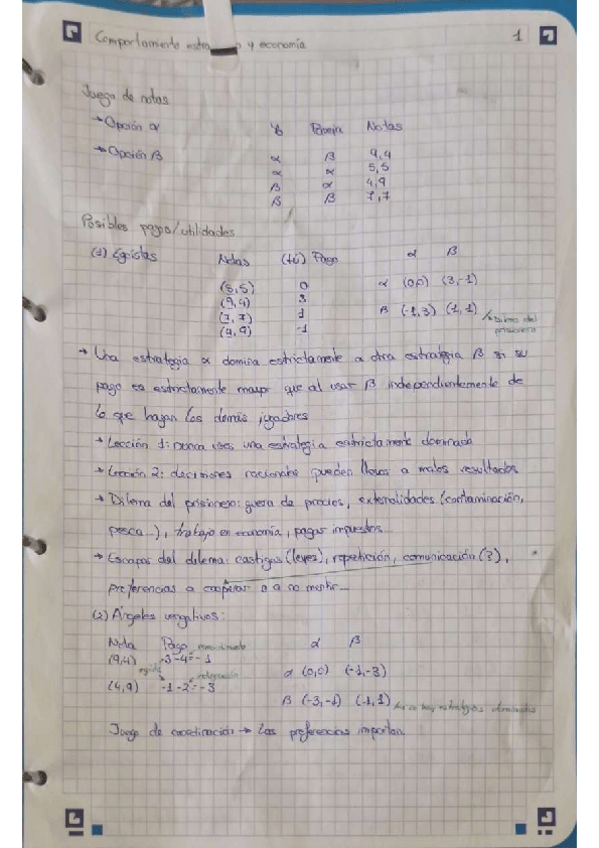 Comportamiento estra o y economía 1
Juego de notas
→ Opción α Tú Pareja Notas
→ Opción β α β 9,4
α α 5,5
β α 4,9
β β 7,7
Posibles pagos/utilidades
(1) Egoístas Notas (tú) Pago α β
(5,5) 0 α (0,0) (3,-1)
(9,4) 3
(7,7) 1 β (-1,3) (1,1) dilema del
(4,9) -1 prisionero
→ Una estrategia α domina estrictamente a otra estrategia β si su
pago es estrictamente mayor que al usar β independientemente de
lo que hagan los demás jugadores
→ Lección 1: nunca uses una estrategia estrictamente dominada
→ Lección 2: decisiones racionales pueden llevar a malos resultados
→ Dilema del prisionero: guerra de precios, externalidades (contaminación,
pesca...), trabajo en economía, pagar impuestos...
→ Escapar del dilema: castigos (leyes), repetición, comunicación (?),
preferencias a cooperar o a no mentir...
(2) Ángeles vengativos:
Nota Pago α β
(9,4) 3-4=-1 α (0,0) (-1,-3)
(4,9) -1-2=-3 indignación
β (-3,-1) (1,1) no hay estrategias dominadas
Juego de coordinación → Las preferencias importan.